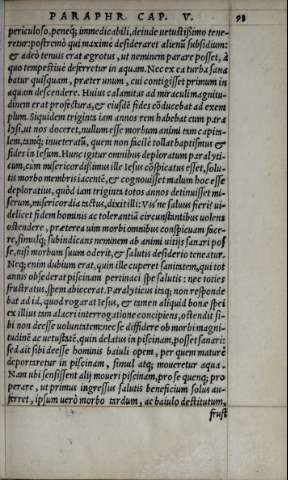 PARAPHR. CAP. V. 98
periculoso, peneq; immedicabili, deinde uetustißimo tene-
retur: postremò qui maximè desideraret alienũ subsidium:
& adeò tenuis erat ægrotus, ut neminem parare posset, à
quo tempestiuè deferretur in aquam. Nec ex ea turba sana
batur quisquam, præter unum, cui contigisset primum in
aquam descendere. Huius calamitas ad miraculi magnitu-
dinem erat profectura, & eiusdẽ fides cõducebat ad exem
plum. Siquidem triginta iam annos rem habebat cum para
lysi, ut nos doceret, nullum esse morbum animi tam capita-
lem, tamq; inueteratũ, quem non facilè tollat baptismus &
fides in Iesum. Hunc igitur omnibus deploratum paralyti-
cum, cùm misericordissimus ille Iesus cõspicatus esset, solu-
tis morbo membris iacentẽ, & cognouisset malum hoc esse
deploratius, quòd iam triginta totos annos detinuisset mi-
serum, misericordia tactus, dixit illi: Vis'ne saluus fieri? ui-
delicet fidem hominis ac tolerantiã circunstantibus uolens
ostendere, præterea uim morbi omnibus conspicuam face-
re, simulq; subindicans neminem ab animi uitijs sanari pos
se, nisi morbum suum oderit, & salutis desiderio teneatur.
Neq; enim dubium erat, quin ille cuperet sanitatem, qui tot
annis obsederat piscinam pertinaci spe salutis: nec toties
frustratus, spem abiecerat. Paralyticus itaq; non responde
bat ad id, quod rogarat Iesus, & tamen aliquid bonæ spei
ex illius tam alacri interrogatione concipiens, ostendit si-
bi non deesse uoluntatem: nec se diffidere ob morbi magni-
tudinẽ ac uetustatẽ, quin delatus in piscinam, posset sanari:
sed ait sibi deesse hominis baiuli opem, per quem maturè
deportaretur in piscinam, simul atq; moueretur aqua.
Nam ubi sensissent alij moueri piscinam, pro se quenq; pro
perare, ut primus ingressus salutis beneficium solus au-
ferret, ipsum uerò morbo tardum, ac baiulo destitutum,
frust